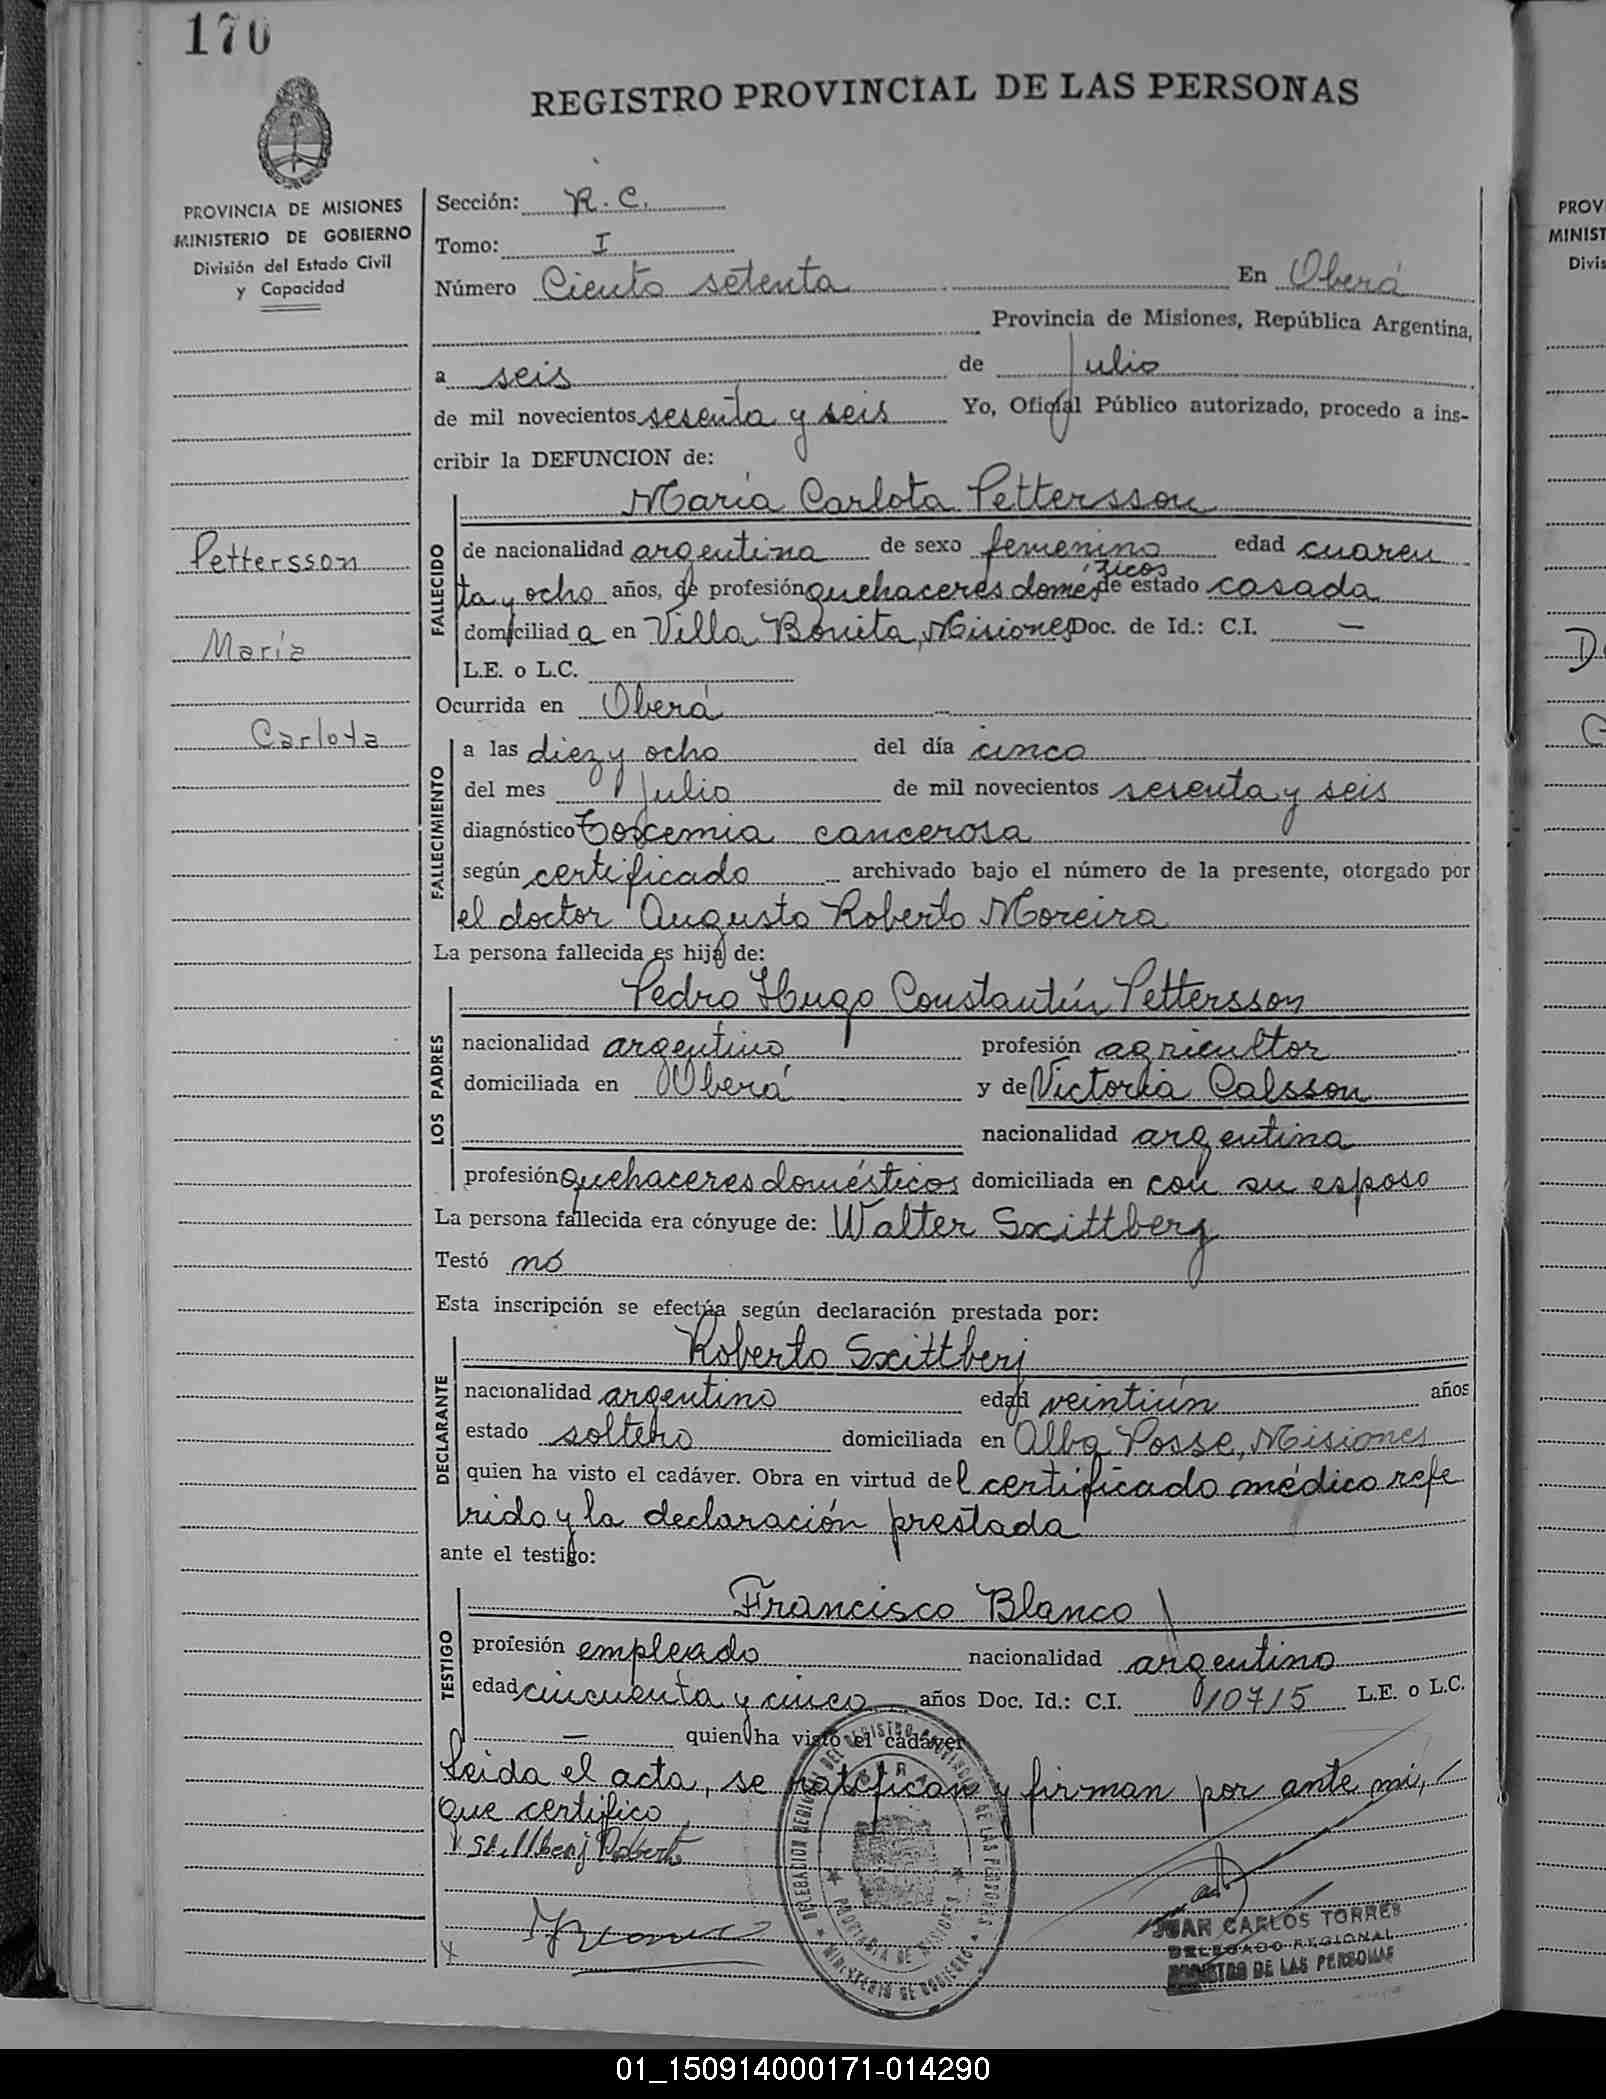 170
REGISTRO PROVINCIAL DE LAS PERSONAS
PROVINCIA DE MISIONES
MINISTERIO DE GOBIERNO
División del Estado Civil
y Capacidad
Pettersson
María
Carlota
Sección: R. C.
Tomo: I
Número Ciento setenta En Oberá
Provincia de Misiones, República Argentina,
a seis de Julio
de mil novecientos sesenta y seis Yo, Oficial Público autorizado, procedo a ins-
cribir la DEFUNCION de:
FALLECIDO
María Carlota Pettersson
de nacionalidad argentina de sexo femenino edad cuaren
ta y ocho años, de profesión quehaceres domésticos de estado casada
domiciliad a en Villa Bonita, Misiones Doc. de Id.: C.I. —
L.E. o L.C.
Ocurrida en Oberá
FALLECIMIENTO
a las diez y ocho del día cinco
del mes Julio de mil novecientos sesenta y seis
diagnóstico Toxcemia cancerosa
según certificado archivado bajo el número de la presente, otorgado por
el doctor Augusto Roberto Moreira
La persona fallecida es hija de:
LOS PADRES
Pedro Hugo Constantín Pettersson
nacionalidad argentino profesión agricultor
domiciliada en Oberá y de Victoria Calsson
nacionalidad argentina
profesión quehaceres domésticos domiciliada en con su esposo
La persona fallecida era cónyuge de: Walter Sxittberg
Testó nó
Esta inscripción se efectúa según declaración prestada por:
DECLARANTE
Roberto Sxittberj
nacionalidad argentino edad veintiún años
estado soltero domiciliada en Alba Posse, Misiones
quien ha visto el cadáver. Obra en virtud del certificado médico refe
rido y la declaración prestada
ante el testigo:
TESTIGO
Francisco Blanco
profesión empleado nacionalidad argentino
edad cincuenta y cinco años Doc. Id.: C.I. 10715 L.E. o L.C.
— quien ha visto el cadáver
Leida el acta, se ratifican y firman por ante mí,
que certifico
Roberto
JUAN CARLOS TORRES
DELEGADO REGIONAL
REGISTRO DE LAS PERSONAS
PROVINCIA DE MISIONES
MINISTERIO DE GOBIERNO
PROV
MINIST
Divis
01_150914000171-014290